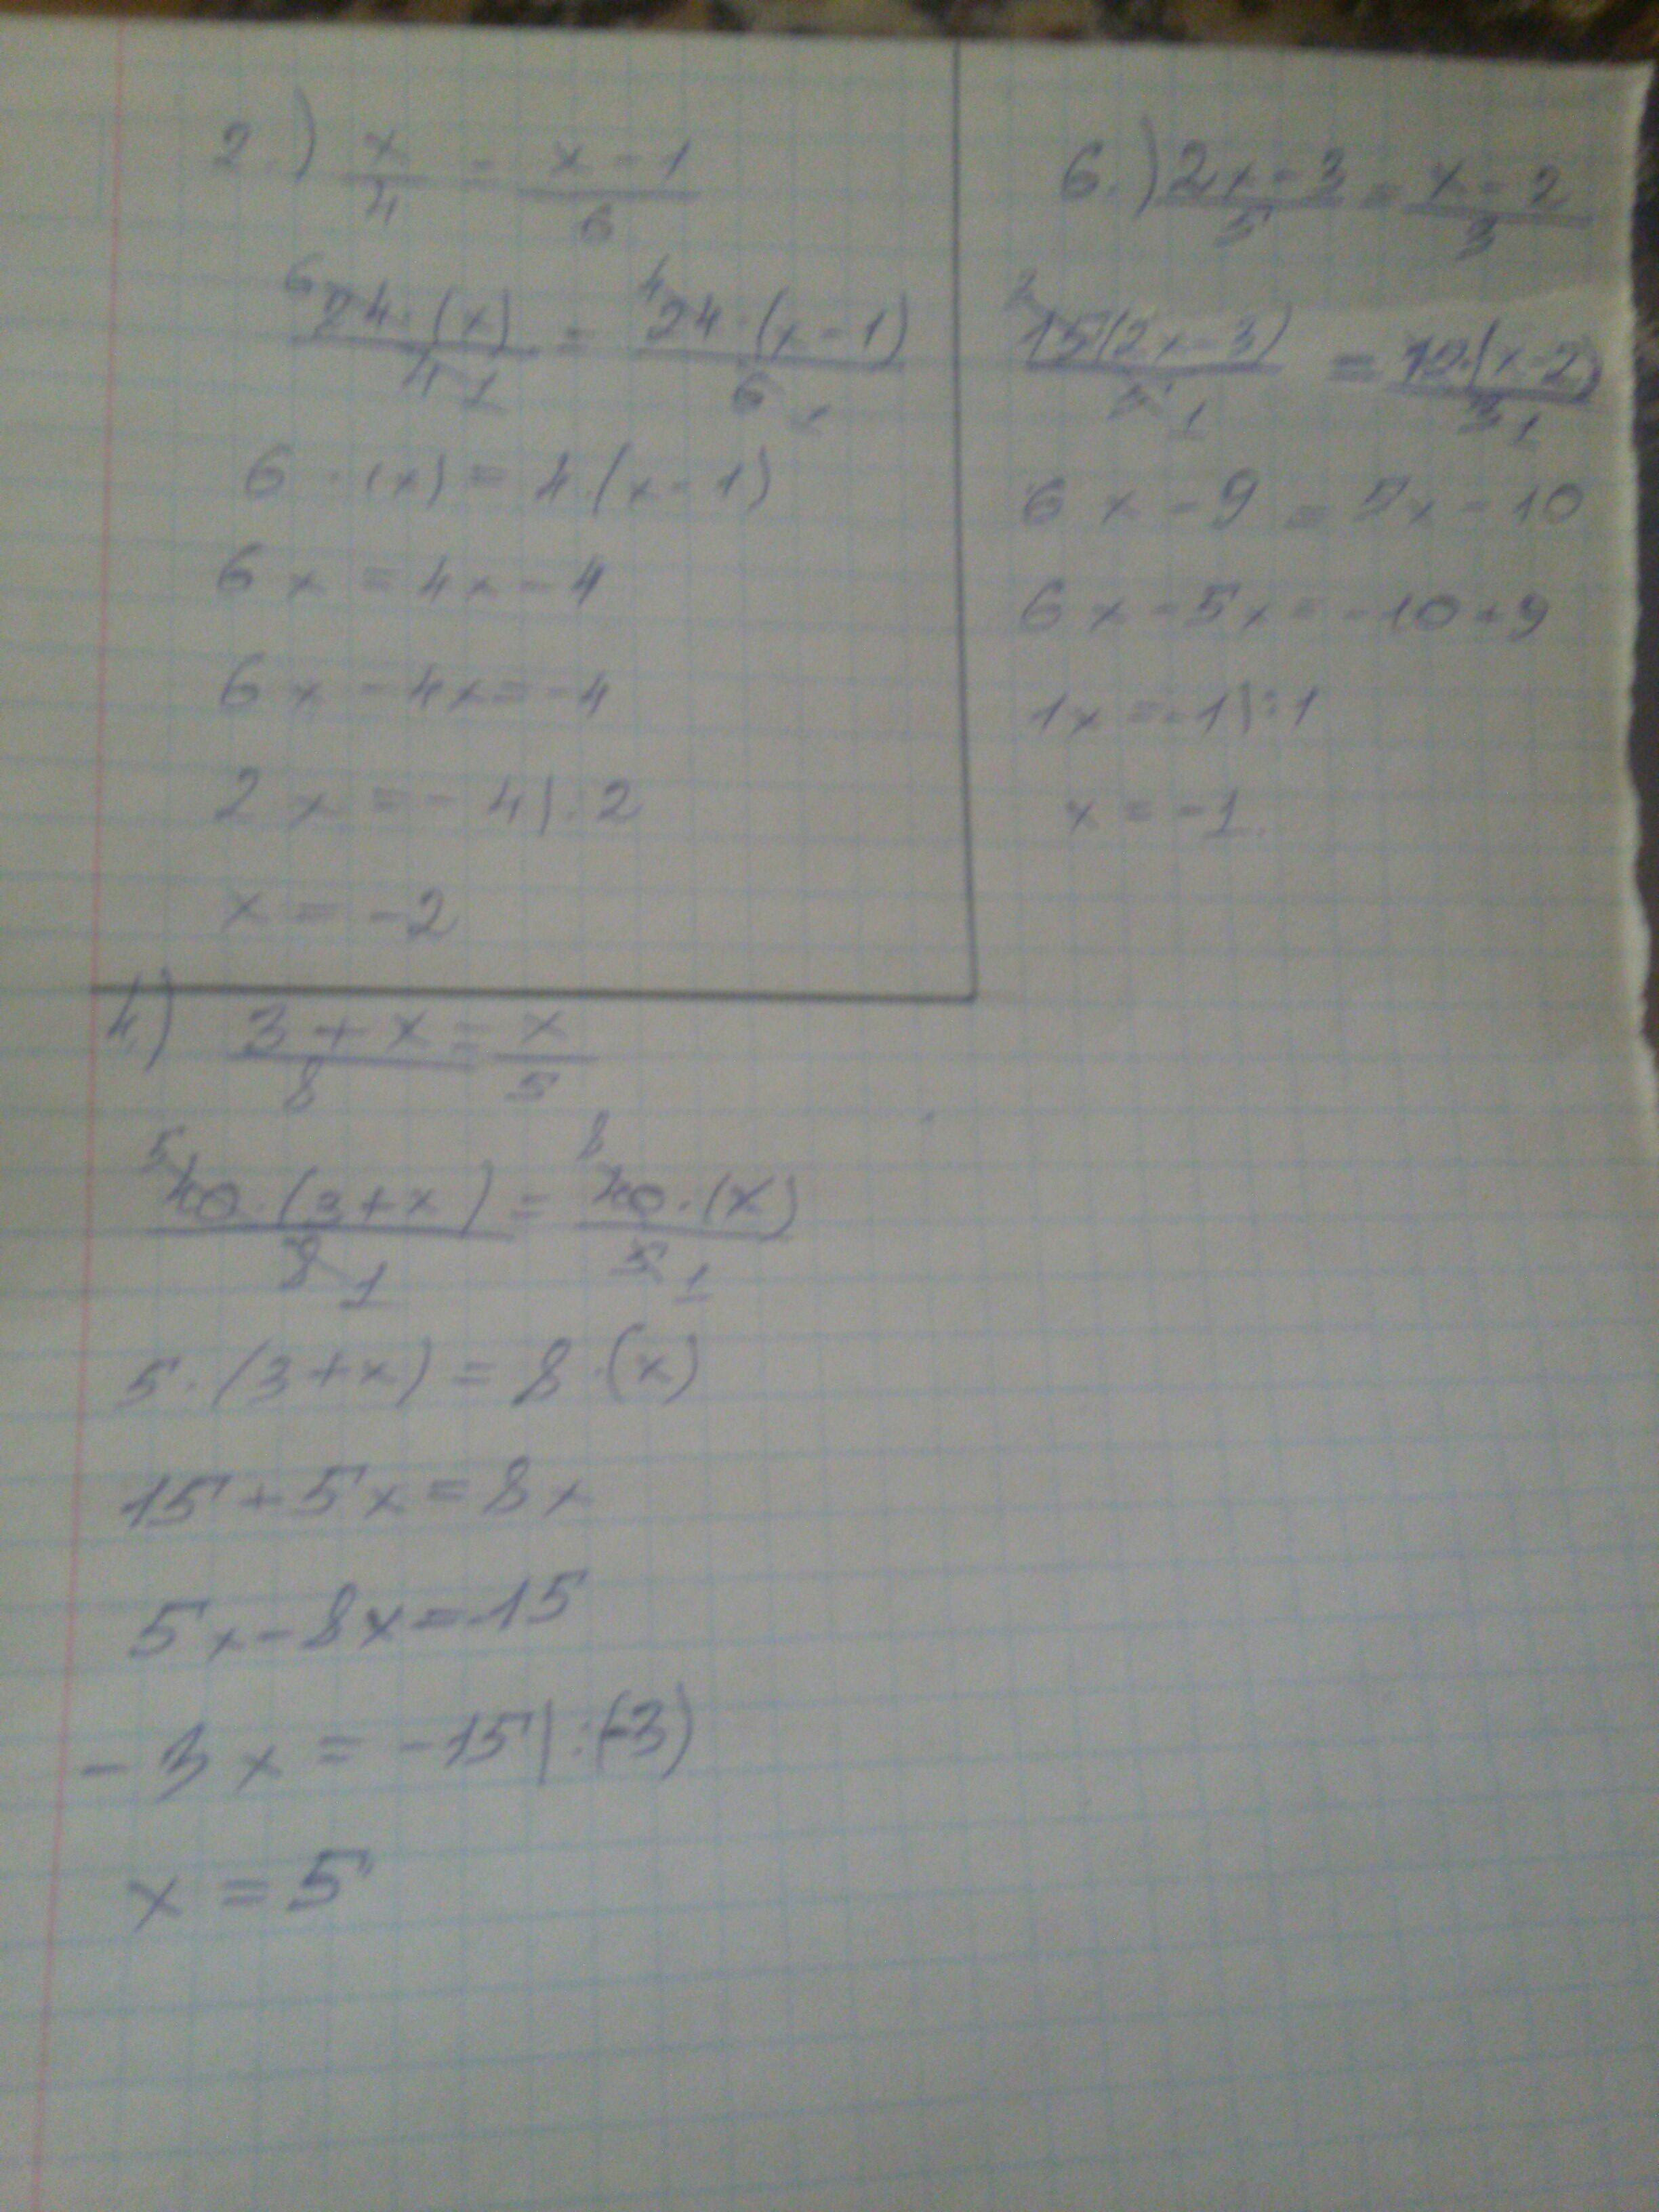 2.) x/4 = x-1/6
6 24·(x)/4 1 = 4 24·(x-1)/6 1
6·(x) = 4·(x-1)
6x = 4x-4
6x-4x=-4
2x=-4|:2
x=-2
6.) 2x-3/5 = x-2/3
15(2x-3)/5 1 = (x-2)/3 1
6x-9=5x-10
6x-5x=-10+9
1x=-1|:1
x=-1.
4.) 3+x/8 = x/5
5 40·(3+x)/8 1 = 8 40·(x)/5 1
5·(3+x)=8·(x)
15+5x=8x
5x-8x=-15
-3x=-15|:(-3)
x=5